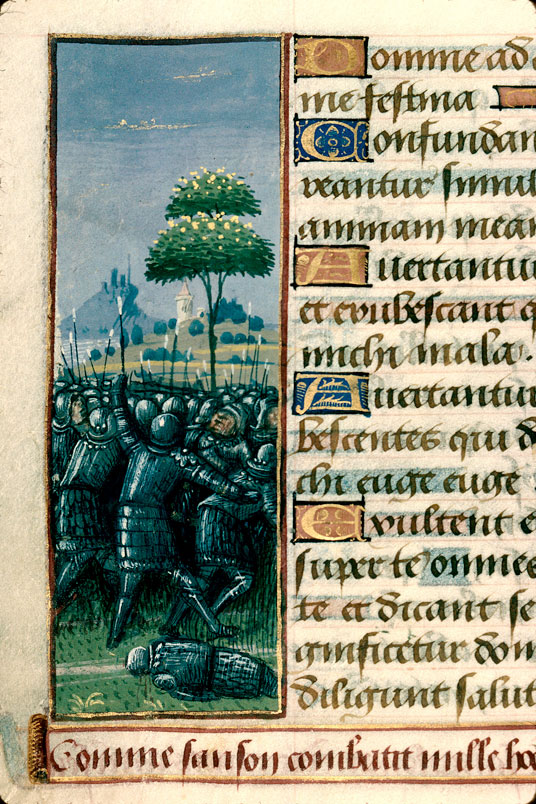 Domine ad
me festina
Confundan
reantur simul
animam mean
Auertantur
et erubescant q
michi mala.
Auertantur
bescentes qui d
chi euge euge
Exultent e
super te omnes
te et dicant se
gnificetur dom
diligunt salut
Comme sanson combatit mille ho